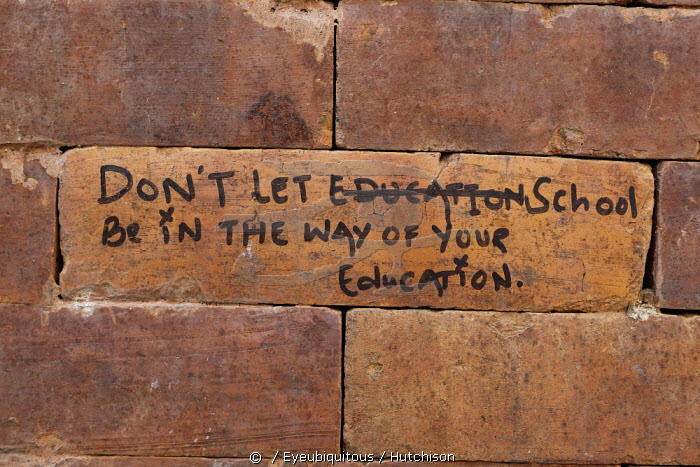 DON'T LET EDUCATION School
Be iN THE WAY OF YOUR
EducATiON.
© / Eyeubiquitous / Hutchison